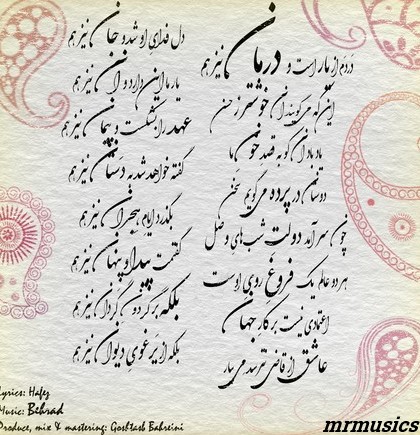 دردم از یار است و درمان نیز هم
دل فدای او شد و جان نیز هم
این که می گویند آن خوشتر ز حسن
یار ما این دارد و آن نیز هم
یاد باد آن کو به قصد خون ما
عهد را بشکست و پیمان نیز هم
دوستان در پرده می گویم سخن
گفته خواهد شد به دستان نیز هم
چون سر آمد دولت شب های وصل
بگذرد ایام هجران نیز هم
هر دو عالم یک فروغ روی اوست
گفتمت پیدا و پنهان نیز هم
اعتمادی نیست بر کار جهان
بلکه بر گردون گردان نیز هم
عاشق از قاضی نترسد می بیار
بلکه از یرغوی دیوان نیز هم
Lyrics: Hafez
Music: Behrad
Produce, mix & mastering: Goshtasb Bahreini
mrmusics